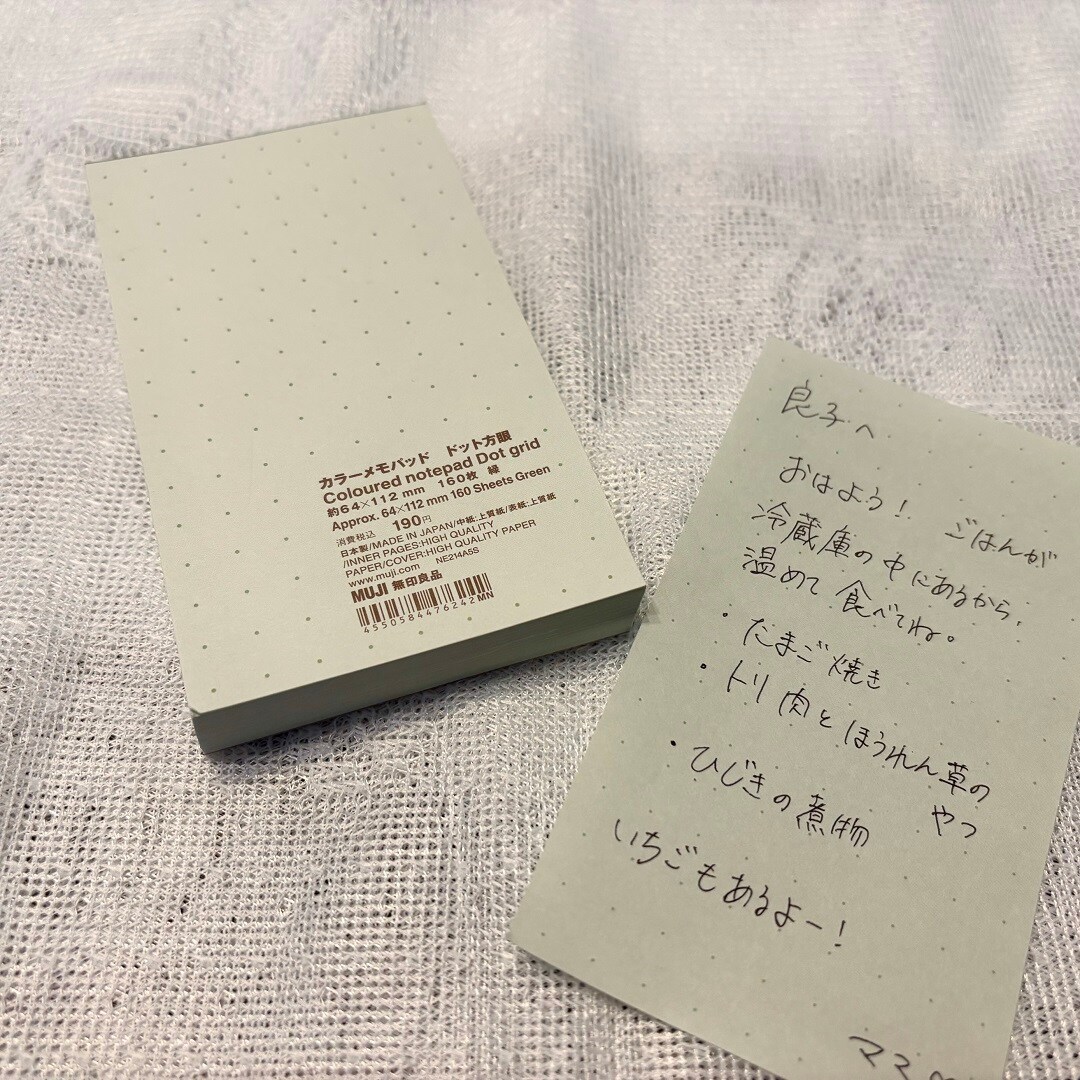 カラーメモパッド　ドット方眼
Coloured notepad Dot grid
約64×112mm　160枚　緑
Approx. 64×112 mm 160 Sheets Green
消費税込　190円
日本製/MADE IN JAPAN/中紙:上質紙/表紙:上質紙
/INNER PAGES:HIGH QUALITY
PAPER/COVER:HIGH QUALITY PAPER
www.muji.com　NE214A5S
MUJI 無印良品
4550584476242MN
良子へ
おはよう！　ごはんが
冷蔵庫の中にあるから、
温めて食べてね。
・たまご焼き
・トリ肉とほうれん草の
やつ
・ひじきの煮物
いちごもあるよー！
ママ